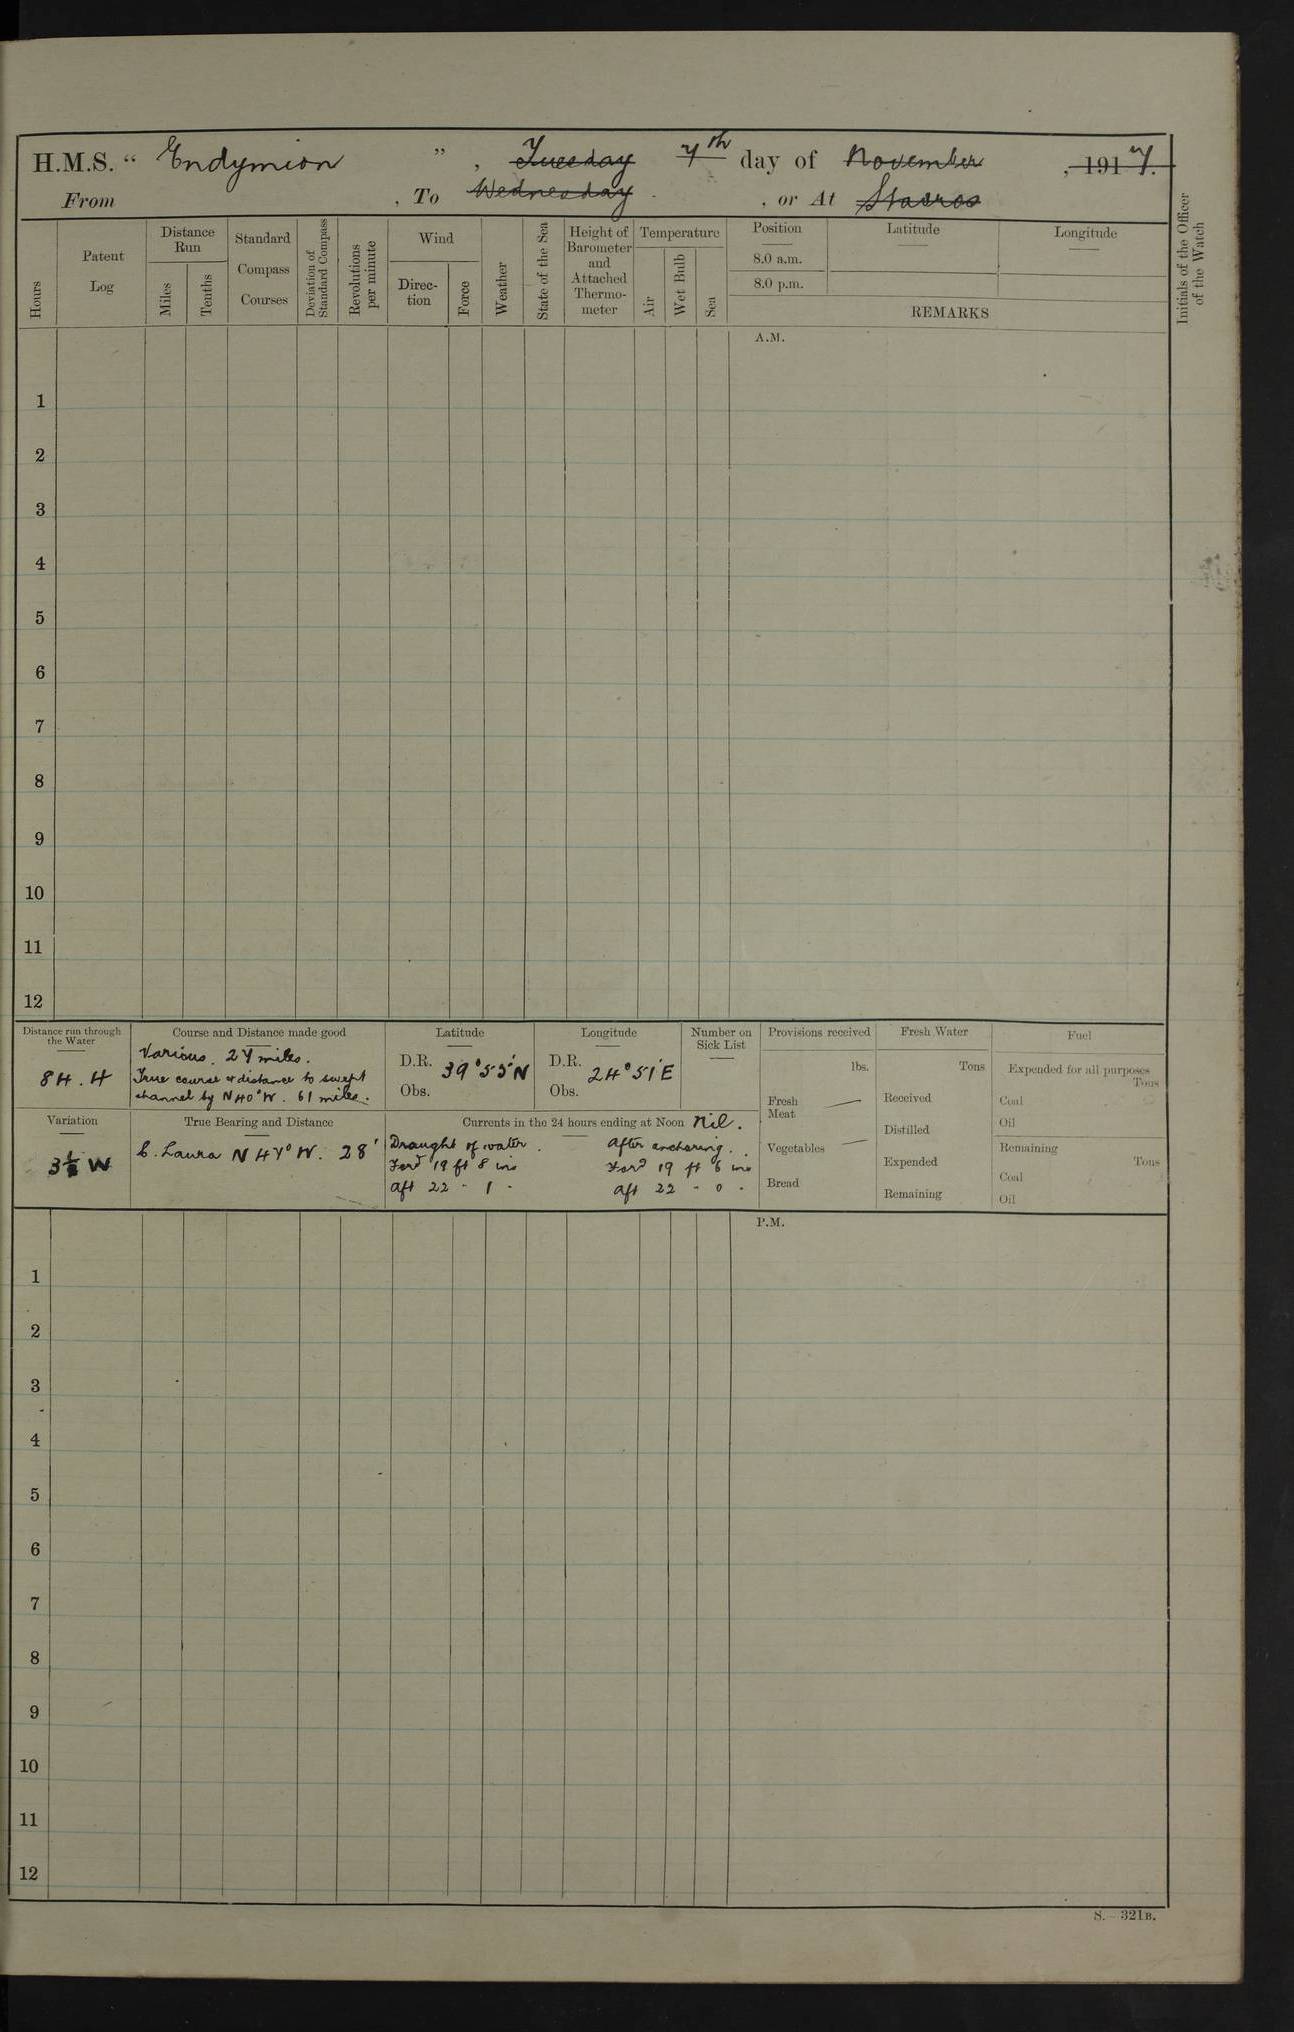 H.M.S. “ Endymion ” , Tuesday 7th day of November , 1917.
From , To Wednesday , or At Stavros
Hours
Patent Log
Distance Run
Miles
Tenths
Standard Compass Courses
Deviation of Standard Compass
Revolutions per minute
Wind
Direc-tion
Force
Weather
State of the Sea
Height of Barometer and Attached Thermo-meter
Temperature
Air
Wet Bulb
Sea
Position
8.0 a.m.
8.0 p.m.
Latitude
Longitude
REMARKS
Initials of the Officer of the Watch
A.M.
1
2
3
4
5
6
7
8
9
10
11
12
Distance run through the Water
84.4
Course and Distance made good
Various. 27 miles.
True course & distance to swept
channel by N 40° W. 61 miles.
Latitude
D.R. 39° 55' N
Obs.
Longitude
D.R. 24° 51' E
Obs.
Number on Sick List
Provisions received
lbs.
Fresh Meat —
Vegetables —
Bread
Fresh Water
Tons
Received
Distilled
Expended
Remaining
Fuel
Expended for all purposes
Tons
Coal
Oil
Remaining
Tons
Coal
Oil
Variation
3½ W
True Bearing and Distance
C. Laura N 47° W. 28'
Currents in the 24 hours ending at Noon Nil.
Draught of water. After anchoring.
Ford 19 ft 8 ins Ford 19 ft 6 ins
Aft 22 - 1 - Aft 22 - 0 -
P.M.
1
2
3
4
5
6
7
8
9
10
11
12
S.—321B.